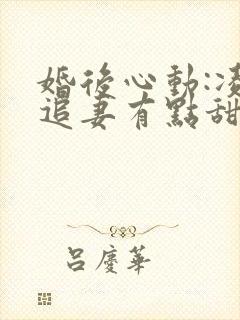 婚後心動:凌
追妻有點甜
呂慶華